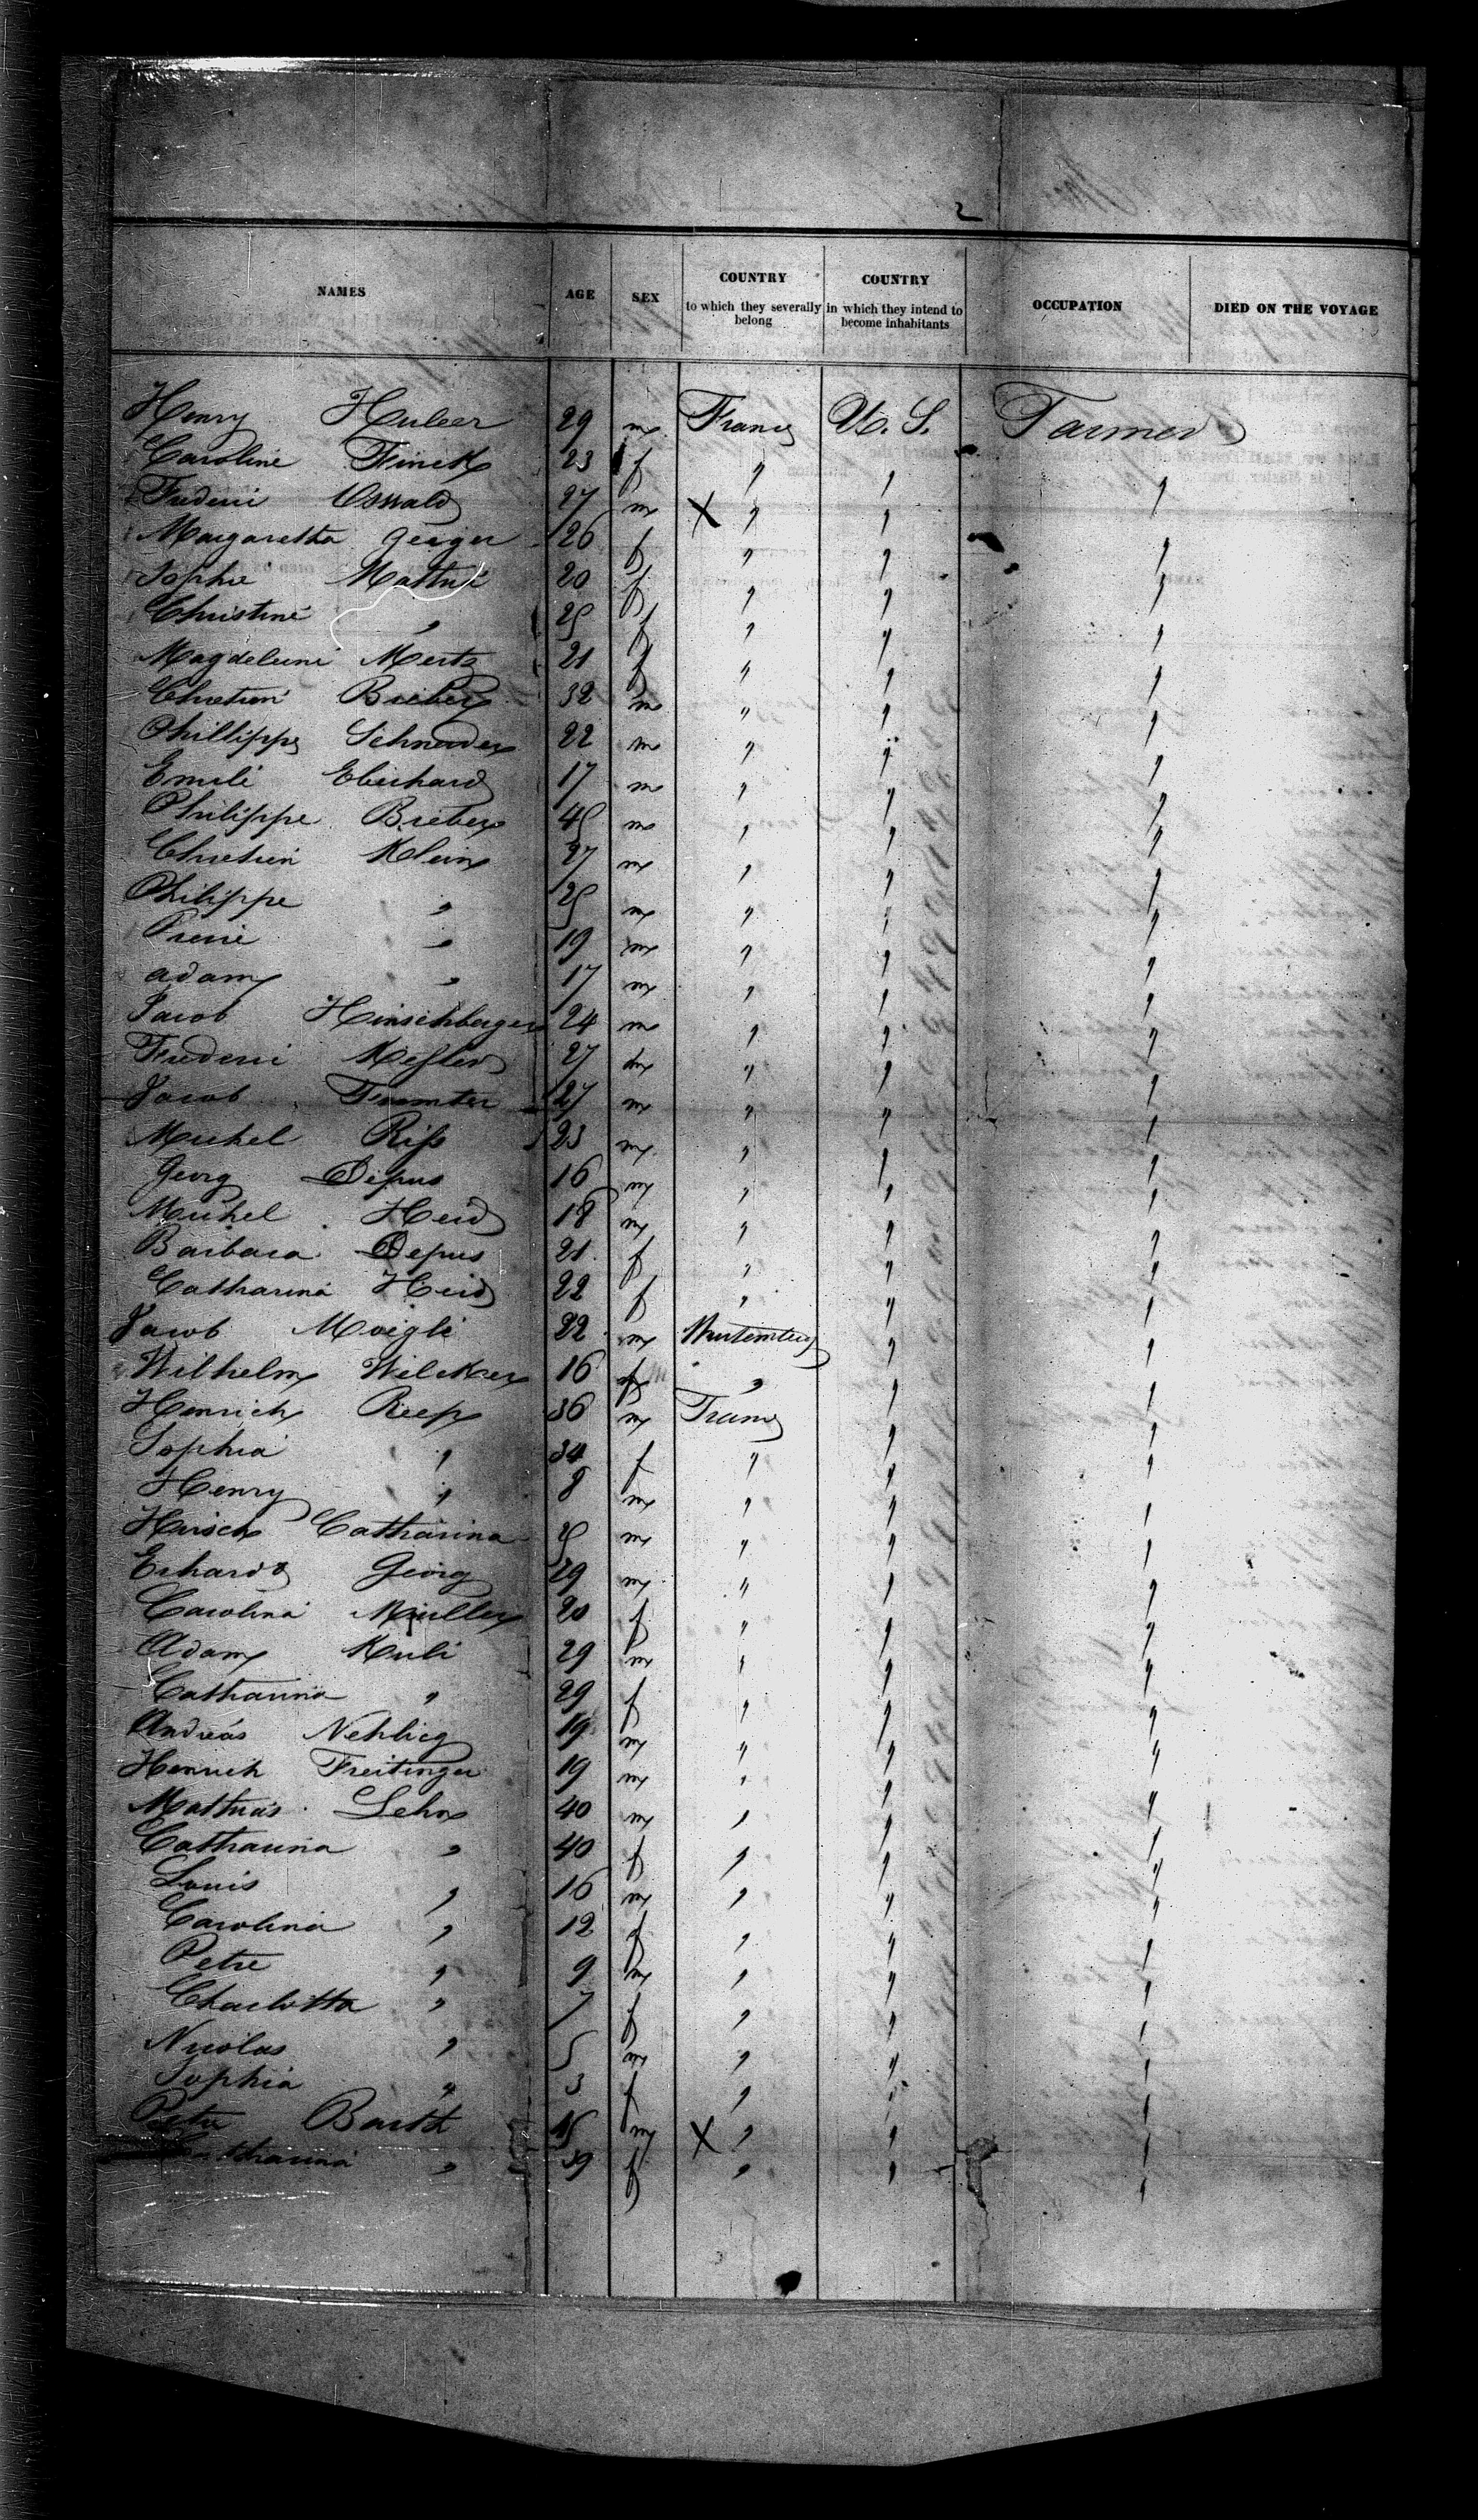 2
NAMES AGE SEX COUNTRY to which they severally belong COUNTRY in which they intend to become inhabitants OCCUPATION DIED ON THE VOYAGE
Henry Huber 29 m France U. S. Farmer
Caroline Finck 23 f " " "
Frederic Oswald 27 m X " " "
Margaretha Geiger 26 f " " "
Sophie 20 f " " "
Christine " 25 f " " "
Magdeleine Mertz 21 f " " "
Chretien Bieber 32 m " " "
Phillippe Schneider 22 m " " "
Emile Eberhard 17 m " " "
Philippe Bieber 45 m " " "
Chretien Klein 27 m " " "
Philippe " 25 m " " "
Pierre " 19 m " " "
Adam " 17 m " " "
Jacob Hinschberger 24 m " " "
Frederic Kessler 27 m " " "
Jacob 27 m " " "
Michel Riss 23 m " " "
Georg Depus 16 m " " "
Michel Heid 18 m " " "
Barbara Depus 21 f " " "
Catharina Heid 22 f " " "
Jacob Moigle 22 m Wurtemberg " "
Wilhelm Wilcker 16 m " " "
Heinrich Reep 36 m France " "
Sophia " 34 f " " "
Henry " 8 m " " "
Hirsch Catharina 25 m " " "
Erhard Georg 29 m " " "
Carolina Müller 20 f " " "
Adam Kuli 29 m " " "
Catharina " 29 f " " "
Andreas Nehlig 19 m " " "
Heinrich Freitinger 19 m " " "
Mathias Lehn 40 m " " "
Catharina " 40 f " " "
Louis " 16 m " " "
Carolina " 12 f " " "
Petre " 9 m " " "
Charlotta " 7 f " " "
Nicolas " 5 m " " "
Sophia " 3 f " " "
Petre Barth 45 m X " " "
Catharina " 39 f " " "